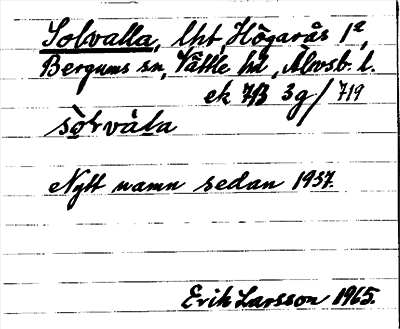 Solvalla, lht, Högarås 1²,
Bergums sn, Vättle hd, Älvsb. l.
ek 7B 3g/719
sòlvàla
Nytt namn sedan 1937.
Erik Larsson 1965.